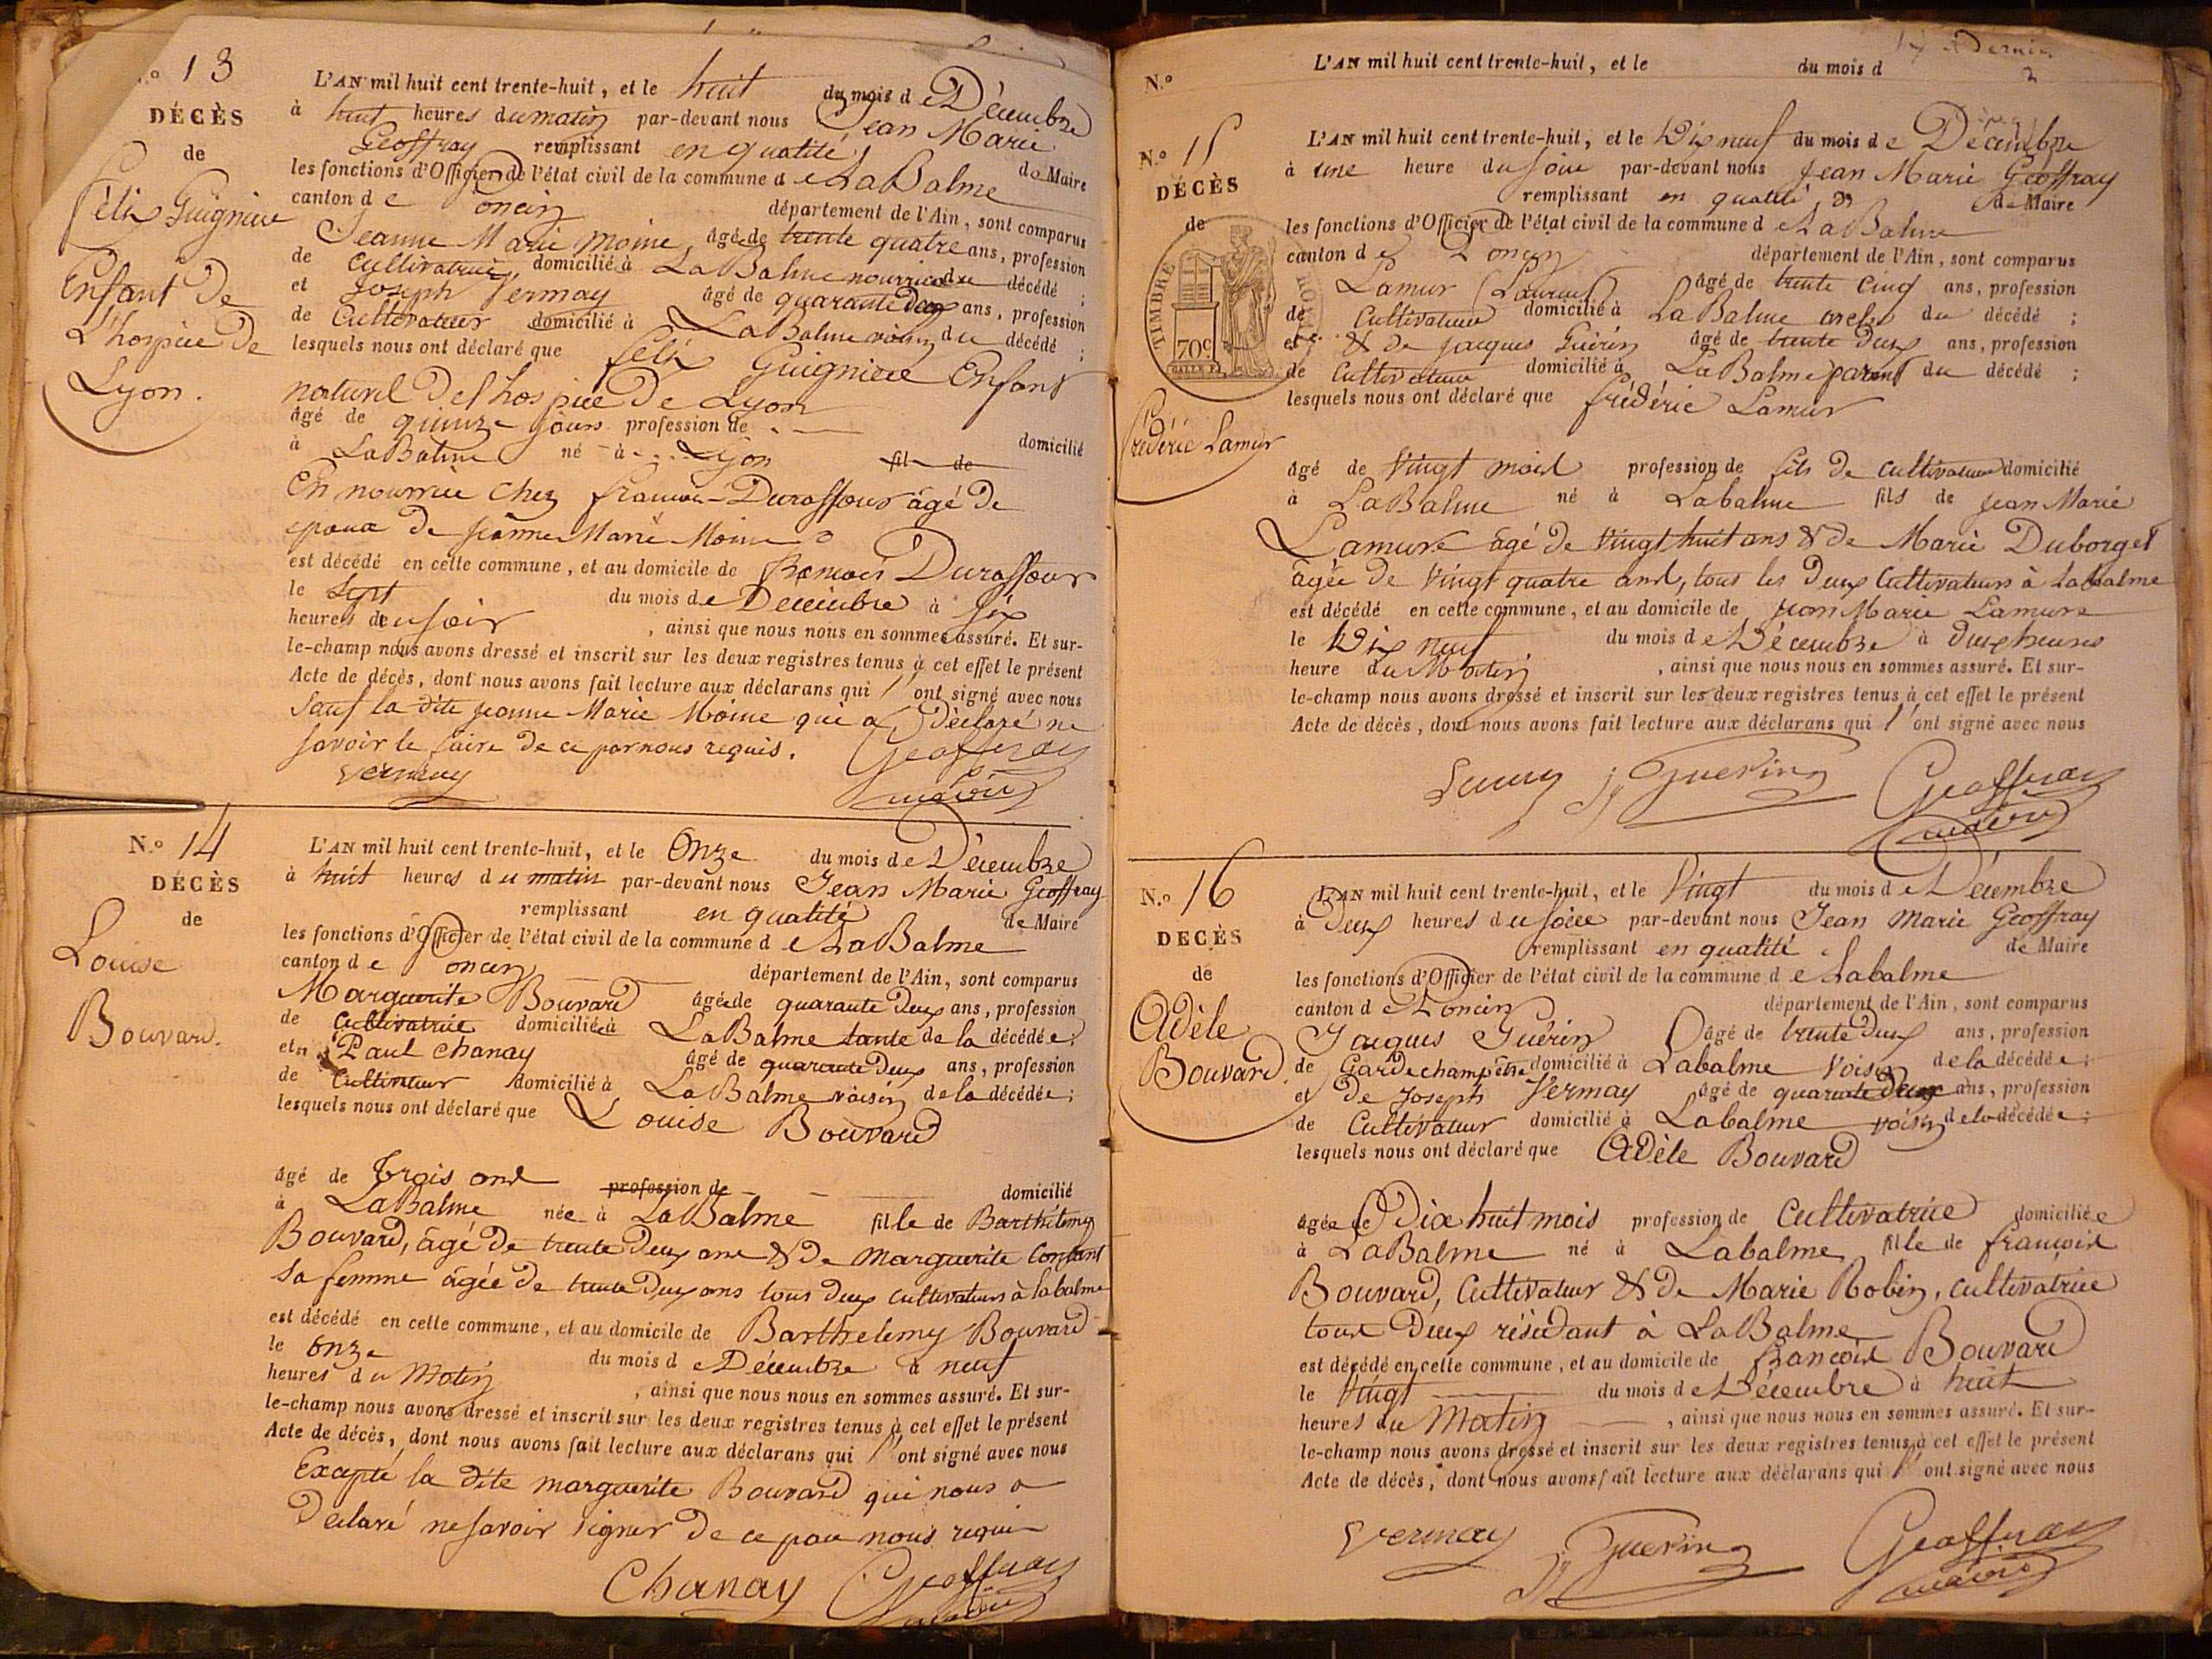 N.º 13
DÉCÈS
de
Félix Guigniere
Enfant De
L'hospice De
Lyon.
L'AN mil huit cent trente-huit, et le huit du mois de Décembre
à huit heures du matin par-devant nous Jean Marie
Geoffray remplissant en qualité de Maire
les fonctions d'Officier de l'état civil de la commune de La Balme
canton de Poncin département de l'Ain, sont comparus
Jeanne Marie Moine, âgé de trente quatre ans, profession
de Cultivatrice, domicilié à La Balme nourrice du décédé ;
et Joseph Vermay âgé de quarante deux ans, profession
de Cultivateur domicilié à La Balme voisin du décédé ;
lesquels nous ont déclaré que Félix Guigniere Enfant
naturel de l'hospice De Lyon
âgé de quinze jours profession de
à La Balme né à Lyon fil de domicilié
En nourrice chez francois Durassour âgé De
epoux de Jeanne Marie Moine
est décédé en cette commune, et au domicile de Francois Durassour
le Sept du mois de Décembre à six
heures du soir, ainsi que nous nous en sommes assuré. Et sur-
le-champ nous avons dressé et inscrit sur les deux registres tenus à cet effet le présent
Acte de décès, dont nous avons fait lecture aux déclarans qui l'ont signé avec nous
Sauf la dite Jeanne Marie Moine qui a déclaré ne
savoir le faire de ce par nous requis.
Vermay Geoffray
maire
N.º 14
DÉCÈS
de
Louise
Bouvard.
L'AN mil huit cent trente-huit, et le Onze du mois de Décembre
à huit heures du matin par-devant nous Jean Marie Geoffray
remplissant en qualité de Maire
les fonctions d'Officier de l'état civil de la commune de La Balme
canton de Poncin département de l'Ain, sont comparus
Marguerite Bouvard âgée de quarante deux ans, profession
de Cultivatrice domiciliée à La Balme tante de la décédée ;
et Paul Chanay âgé de quarante Deux ans, profession
de Cultivateur domicilié à La Balme voisin de la décédée ;
lesquels nous ont déclaré que Louise Bouvard
âgé de Trois ans profession de domicilié
à La Balme née à La Balme fille de Barthélemy
Bouvard, âgé De trente Deux ans & De Marguerite Constant
Sa femme âgée De trente Deux ans tous deux cultivateurs à labalme
est décédé en cette commune, et au domicile de Barthelemy Bouvard
le onze du mois de Décembre à neuf
heures du Matin, ainsi que nous nous en sommes assuré. Et sur-
le-champ nous avons dressé et inscrit sur les deux registres tenus à cet effet le présent
Acte de décès, dont nous avons fait lecture aux déclarans qui l'ont signé avec nous
Excepté la dite marguerite Bouvard qui nous a
Déclaré ne savoir signer De ce par nous requis
Chanay Geoffray
maire
dernier
N.º L'AN mil huit cent trente-huit, et le du mois d
N.º 15
DÉCÈS
de
TIMBRE ROYAL
70 c
Frédéric Lamur
L'AN mil huit cent trente-huit, et le Dix neuf du mois de Décembre
à une heure du soir par-devant nous Jean Marie Geoffray
remplissant en qualité de Maire
les fonctions d'Officier de l'état civil de la commune de La Balme
canton de Poncin département de l'Ain, sont comparus
Lamur Laurent âgé de trente cinq ans, profession
de Cultivateur domicilié à La Balme oncle du décédé ;
et & de Jacques Guérin âgé de trente deux ans, profession
de Cultivateur domicilié à La Balme parent du décédé ;
lesquels nous ont déclaré que frédéric Lamur
âgé de Vingt mois profession de fils de cultivateur domicilié
à La Balme né à Labalme fils de Jean Marie
Lamure âgé de Vingt huit ans & de Marie Duborget
âgée de Vingt quatre ans, tous les deux Cultivateurs à Labalme
est décédé en cette commune, et au domicile de Jean Marie Lamure
le Dix neuf du mois de Décembre à deux heures
heure du Matin, ainsi que nous nous en sommes assuré. Et sur-
le-champ nous avons dressé et inscrit sur les deux registres tenus à cet effet le présent
Acte de décès, dont nous avons fait lecture aux déclarans qui l'ont signé avec nous
J Guerin Geoffray
maire
N.º 16
DECÈS
de
Adèle
Bouvard.
L'AN mil huit cent trente-huit, et le Vingt du mois de Décembre
à Deux heures du soir par-devant nous Jean Marie Geoffray
remplissant en qualité de Maire
les fonctions d'Officier de l'état civil de la commune de Labalme
canton de Poncin département de l'Ain, sont comparus
Jacques Guérin âgé de trente Deux ans, profession
de Garde champêtre domicilié à Labalme Voisin de la décédée ;
et De Joseph Vermay âgé de quarante deux ans, profession
de Cultivateur domicilié à Labalme voisin de la décédée ;
lesquels nous ont déclaré que Adèle Bouvard
âgée de Dix huit mois profession de Cultivatrice domiciliée
à La Balme né à Labalme fille de françois
Bouvard, Cultivateur & De Marie Robin, cultivatrice
tous Deux résidant à La Balme
est décédé en cette commune, et au domicile de François Bouvard
le Vingt du mois de Décembre à huit
heures du Matin, ainsi que nous nous en sommes assuré. Et sur-
le-champ nous avons dressé et inscrit sur les deux registres tenus à cet effet le présent
Acte de décès, dont nous avons fait lecture aux déclarans qui l'ont signé avec nous
Vermay J Guerin Geoffray
maire